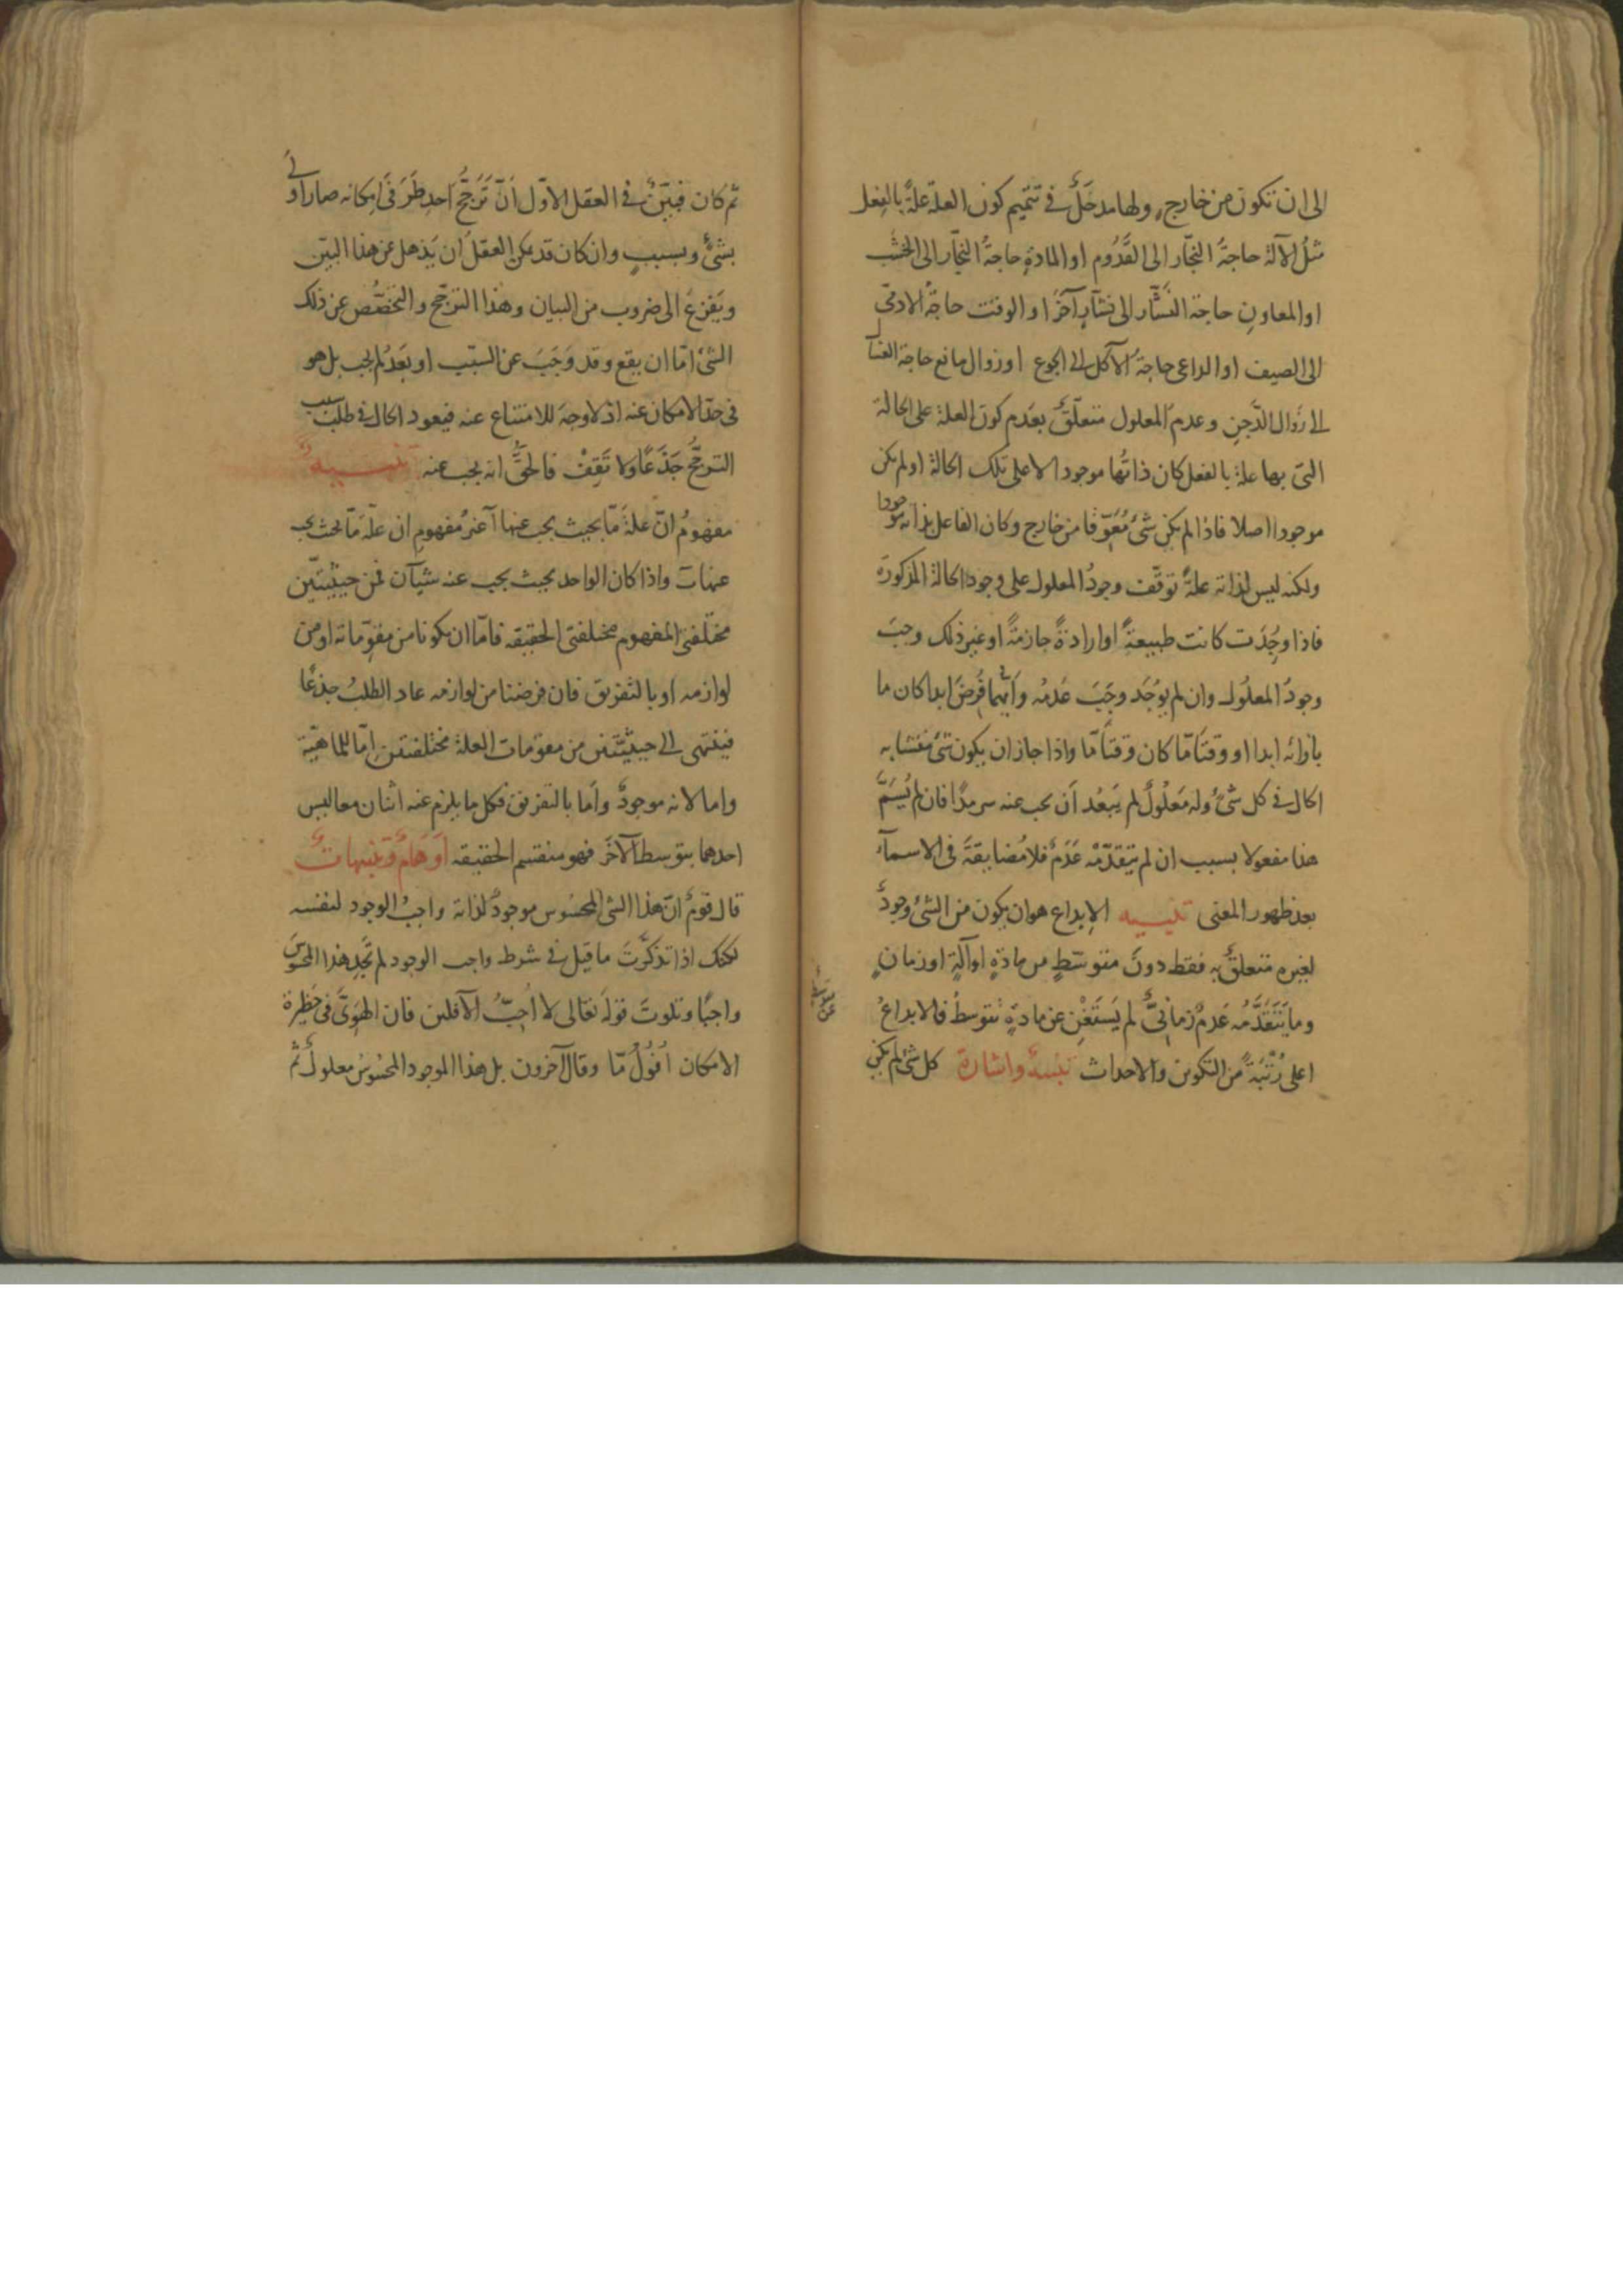 الى ان تكون من خارج ولها مدخلٌ في تتميم كون العلة علةً بالفعل
مثلُ الآلة حاجةَ النجّار الى القَدُوم او المادة حاجةُ النجّار الى الخشب
او المعاونِ حاجة النشّار الى نشّارٍ آخرَ او الوقت حاجةُ الادمى
الى الصيف او الداعى حاجةُ الآكل الى الجوع او زوال مانع حاجة الغسّال
الى زوال الدَّجنِ وعدمُ المعلول متعلّقٌ بعَدم كون العلة على الحالة
التى بها علة بالفعل كان ذاتُها موجودا لا على تلك الحالة او لم يكن
موجودا اصلا فاذا لم يكن شئ مُعَوِّقا من خارج وكان الفاعل بذاته موجودا
ولكنه ليس لذاته علةً توقّف وجودُ المعلول على وجود الحالة المذكورة
فاذا وُجِدَت كانت طبيعةً او ارادةً جازمةً او غير ذلك وجبَ
وجودُ المعلول وان لم يُوجَد وجَبَ عَدمُه وايُّهما فُرِضَ ابدا كان ما
بازائه ابدا او وقتًا مّا كان وقتًا مّا واذا جاز ان يكون شئ متشابه
الحال فى كل شئ وله مَعلُولٌ لم يَبعُد أن يجب عنه سرمدًا فان لم يُسَمَّ
هذا مفعولا بسبب ان لم يتقدّمْه عَدَمٌ فلا مُضايقةَ فى الاسماء
بعد ظهور المعنى تنبيه الإبداع هو ان يكون من الشئ وجودٌ
لغيره متعلقٌ به فقط دونَ متوسّطٍ من مادةٍ او آلةٍ او زمانٍ
وما يَتَقَدَّمُه عَدمٌ زمانىٌّ لم يَستَغْنِ عن مادةٍ تتوسطُ فالابداعُ
اعلى رُتْبَةً من التكوين والاحداث تنبيهٌ واشارة كل شئ لم يكن
ثم كان فبَيّنٌ فى العقل الاوّل أنّ تَرَجُّحَ احدِ طَرَفَى امكانه صار اولى
بشئٍ وبسببٍ وان كان قد يمكن العقلُ ان يَذهل عن هذا البيّن
ويَفزعَ الى ضروب من البيان وهذا الترجّح والتخصُّص عن ذلك
الشئ امّا ان يقع وقد وَجَبَ عن السبَب او بَعدُ لم يجب بل هو
فى حدّ الامكان عنه اذ لا وجهَ للامتناع عنه فيعود الحال فى طلب سبب
الترجُّح جَذَعًا ولا تَقِفُ فالحقُّ انه يجب عنه تنبيهٌ
مفهومُ انّ علةً مّا بحيث يجب عنها آ غيرُ مفهومِ ان علّةً مّا بحيث يجب
عنها ب واذا كان الواحد بحيث يجب عنه شيآن فمن حيثيتَين
مختلفتى المفهوم مختلفتى الحقيقه فامّا ان يكونا من مقوِّماته او من
لوازمه او بالتفريق فان فرضتا من لوازمه عاد الطلبُ جذعًا
فينتهى الى حيثيّتين من مقوّمات العلة مختلفتين امّا للماهيّة
واما لانه موجودٌ وأما بالتفريق فكل ما يلزم عنه اثنان معا ليس
احدهما بتوسط الآخَر فهو منقسم الحقيقه أوهامٌ وتنبيهاتٌ
قال قومٌ انّ هذا الشئ المحسُوس موجودٌ لذاته واجبُ الوجود لنفسه
لكنك اذا تذكّرتَ ما قيل فى شرط واجب الوجود لم تَجِد هذا المحسوسَ
واجبًا وتلوتَ قولَه تعالى لا أُحِبُّ الآفلين فان الهَوِىَّ فى حَظيرة
الامكان أُفُولٌ مّا وقال آخرون بل هذا الموجود المحسُوسُ معلولٌ ثم